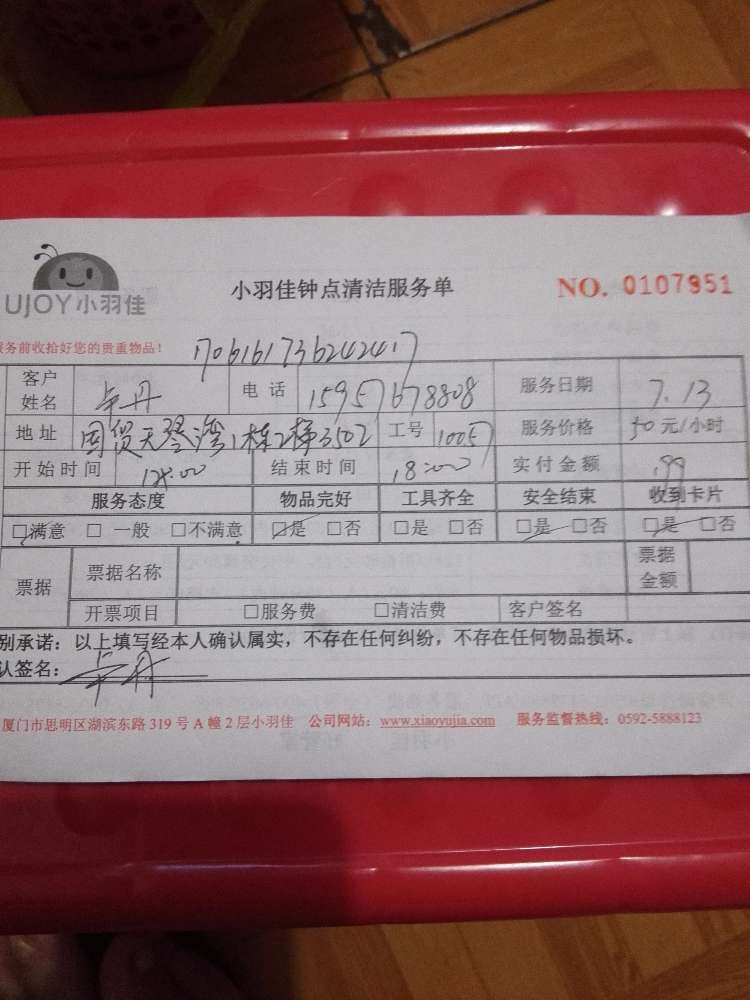 UJOY小羽佳
小羽佳钟点清洁服务单
NO. 0107951
服务前收拾好您的贵重物品！
1706161736242417
客户姓名 卓丹 电话 15957678808 服务日期 7.13
地址 国贸天琴湾1栋2梯3502 工号 1005 服务价格 50元/小时
开始时间 结束时间 18:00 实付金额 199
服务态度 物品完好 工具齐全 安全结束 收到卡片
□满意 □一般 □不满意 □是 □否 □是 □否 □是 □否 □是 □否
票据 票据名称 票据金额
开票项目 □服务费 □清洁费 客户签名
别承诺：以上填写经本人确认属实，不存在任何纠纷，不存在任何物品损坏。
认签名：卓丹
厦门市思明区湖滨东路319号A幢2层小羽佳 公司网站：www.xiaoyujia.com 服务监督热线：0592-5888123